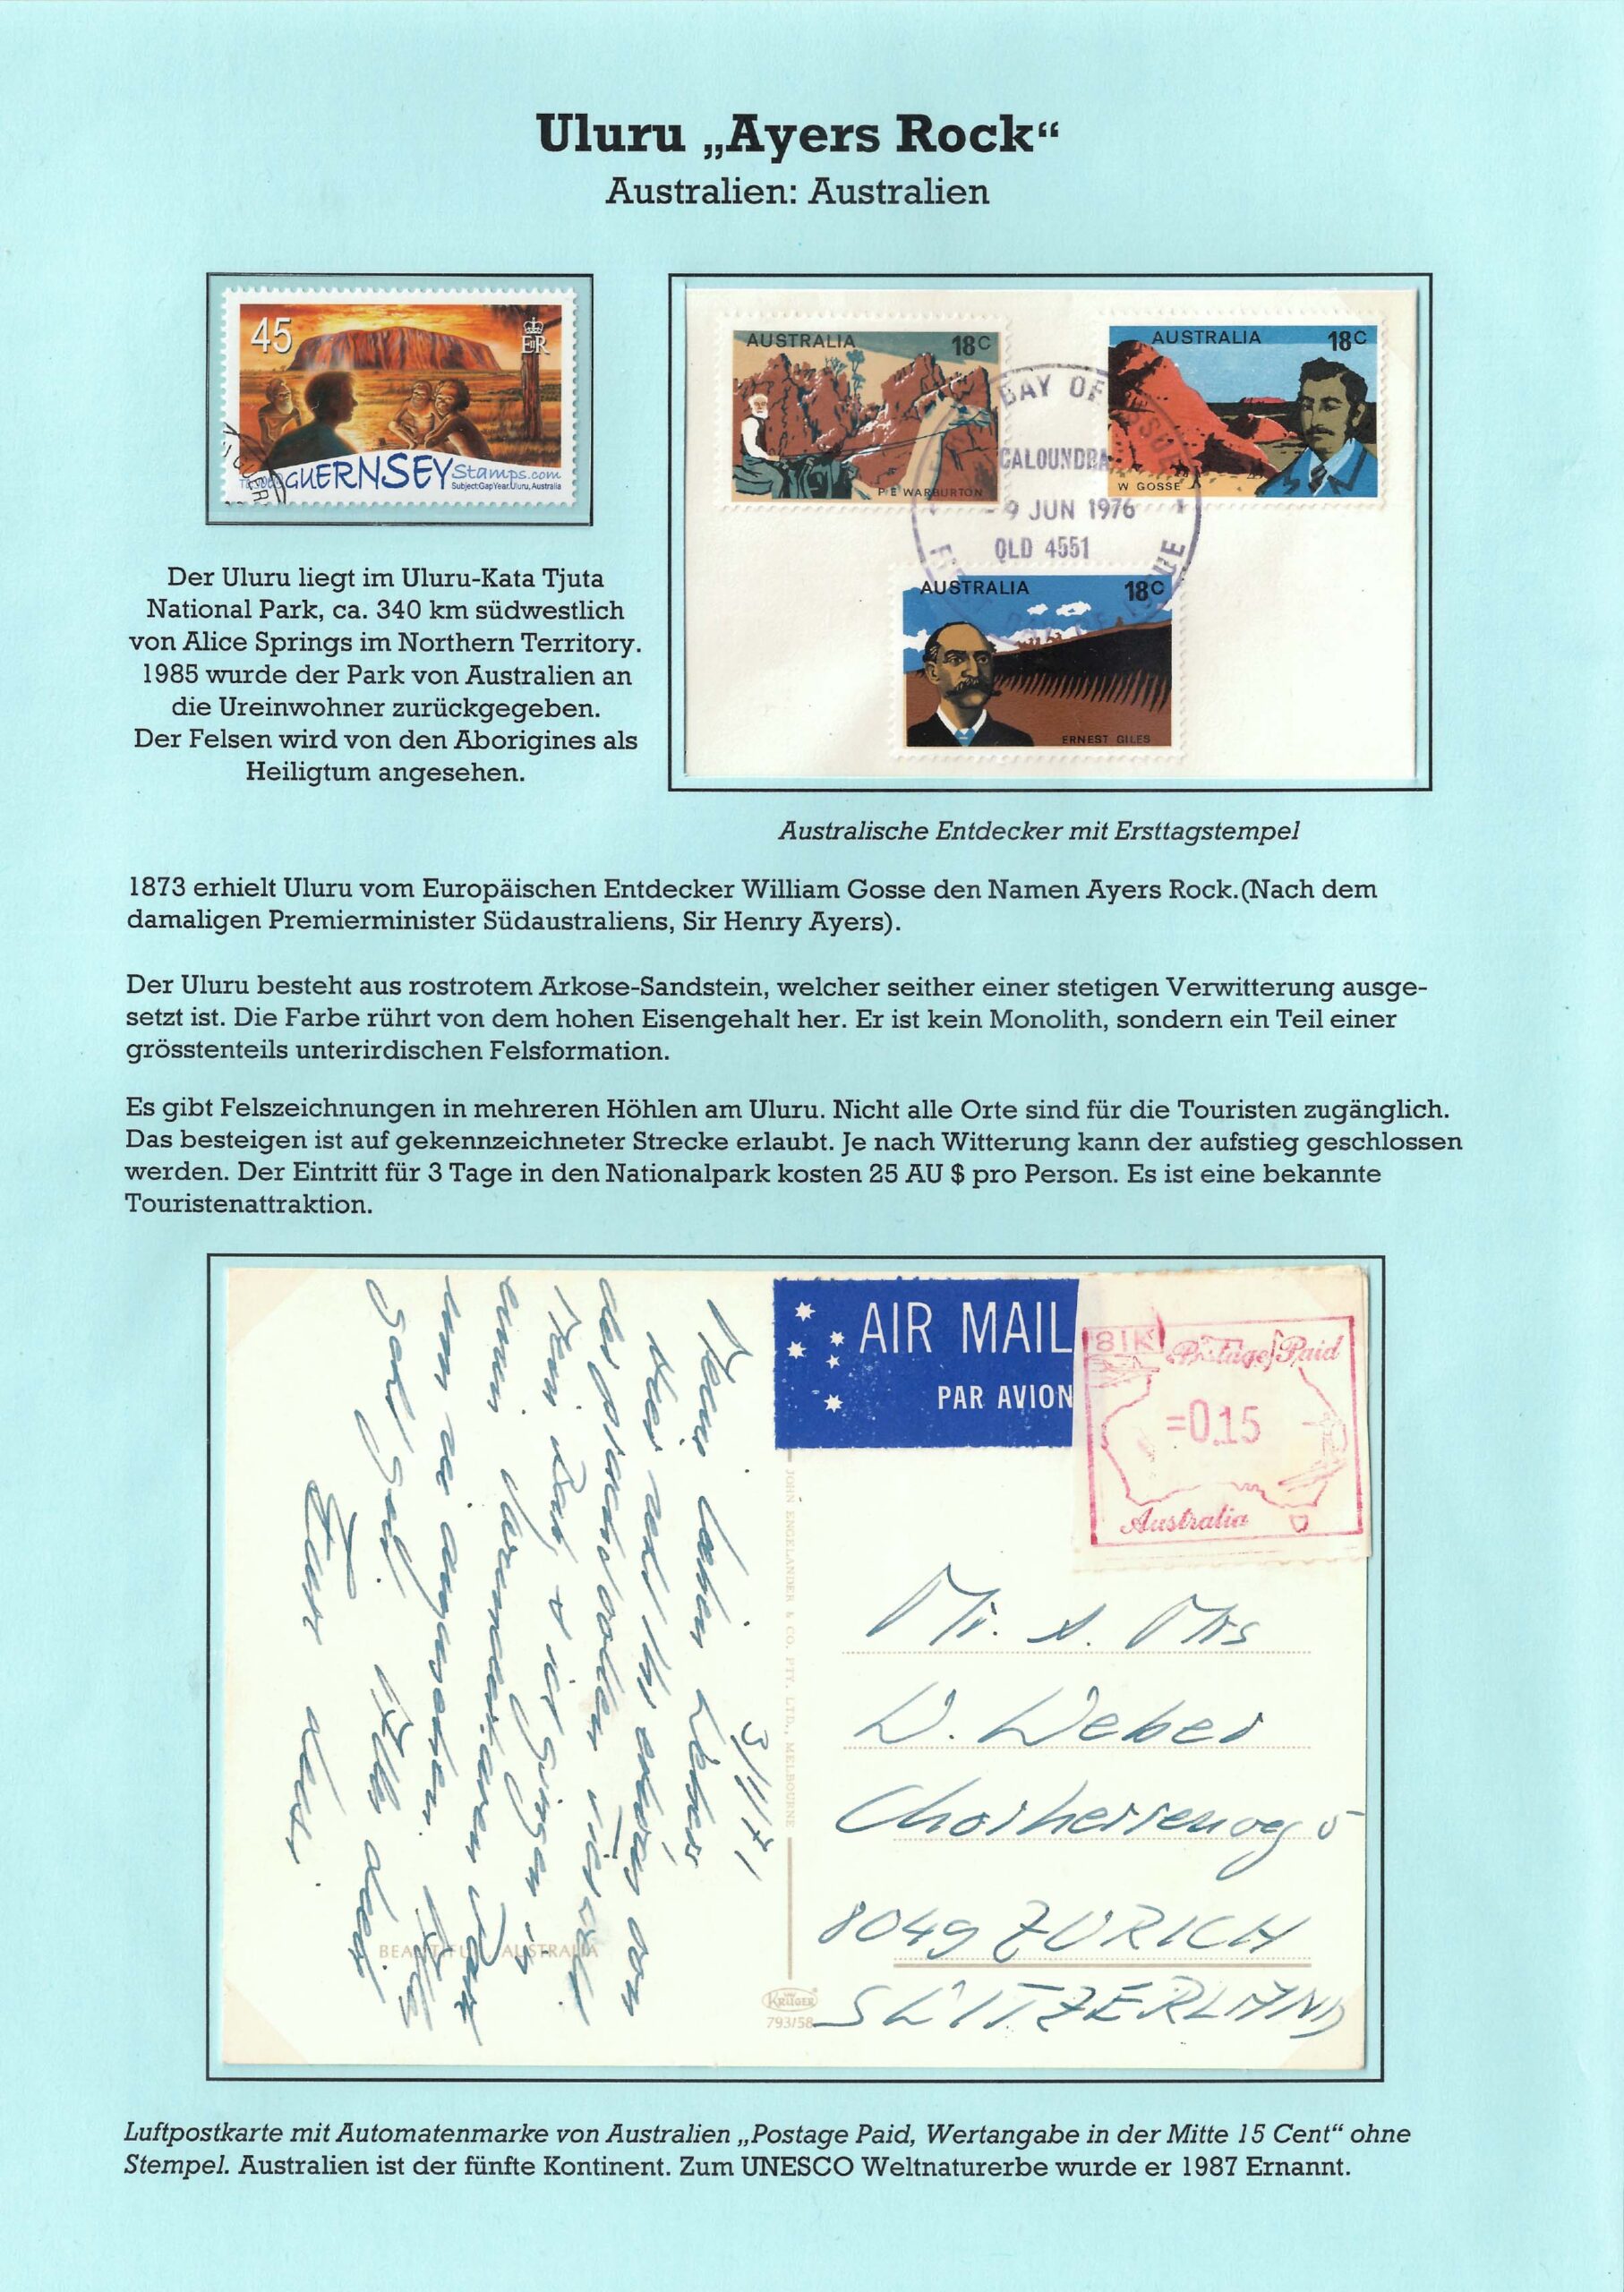 Uluru „Ayers Rock“
Australien: Australien
45
ER
GUERNSEY Stamps.com
Subject:GapYear.Uluru, Australia
AUSTRALIA 18C
P E WARBURTON
AUSTRALIA 18C
W GOSSE
DAY OF ISSUE
CALOUNDRA
- 9 JUN 1976
QLD 4551
AUSTRALIA 18C
ERNEST GILES
Der Uluru liegt im Uluru-Kata Tjuta
National Park, ca. 340 km südwestlich
von Alice Springs im Northern Territory.
1985 wurde der Park von Australien an
die Ureinwohner zurückgegeben.
Der Felsen wird von den Aborigines als
Heiligtum angesehen.
Australische Entdecker mit Ersttagstempel
1873 erhielt Uluru vom Europäischen Entdecker William Gosse den Namen Ayers Rock.(Nach dem
damaligen Premierminister Südaustraliens, Sir Henry Ayers).
Der Uluru besteht aus rostrotem Arkose-Sandstein, welcher seither einer stetigen Verwitterung ausge-
setzt ist. Die Farbe rührt von dem hohen Eisengehalt her. Er ist kein Monolith, sondern ein Teil einer
grösstenteils unterirdischen Felsformation.
Es gibt Felszeichnungen in mehreren Höhlen am Uluru. Nicht alle Orte sind für die Touristen zugänglich.
Das besteigen ist auf gekennzeichneter Strecke erlaubt. Je nach Witterung kann der aufstieg geschlossen
werden. Der Eintritt für 3 Tage in den Nationalpark kosten 25 AU $ pro Person. Es ist eine bekannte
Touristenattraktion.
3/1/71
Meine lieben Webers
BEAUTIFUL AUSTRALIA
JOHN ENGELANDER & CO. PTY. LTD., MELBOURNE
KRÜGER
793/58
AIR MAIL
PAR AVION
81K Postage Paid
=0.15
Australia
Mr. & Mrs
W. Weber
Chorherrenweg 5
8049 ZURICH
SWITZERLAND
Luftpostkarte mit Automatenmarke von Australien „Postage Paid, Wertangabe in der Mitte 15 Cent“ ohne
Stempel. Australien ist der fünfte Kontinent. Zum UNESCO Weltnaturerbe wurde er 1987 Ernannt.